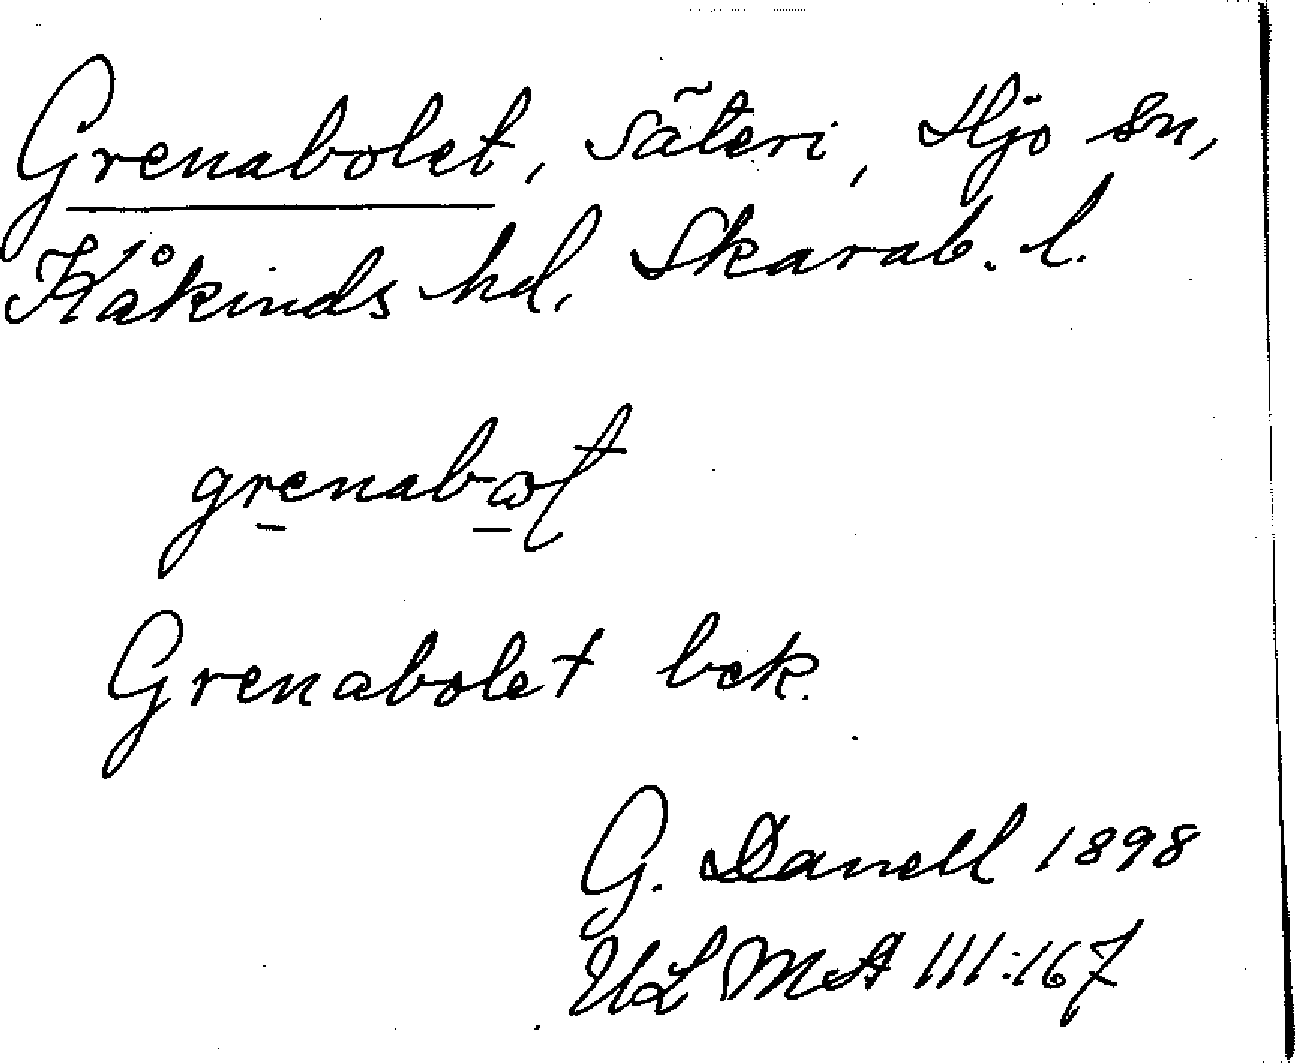 Grenabolet, säteri, Hjo sn,
Kåkinds hd, Skarab. l.
Grenabolet bek.
G. Danell 1898
ULMA 111:167